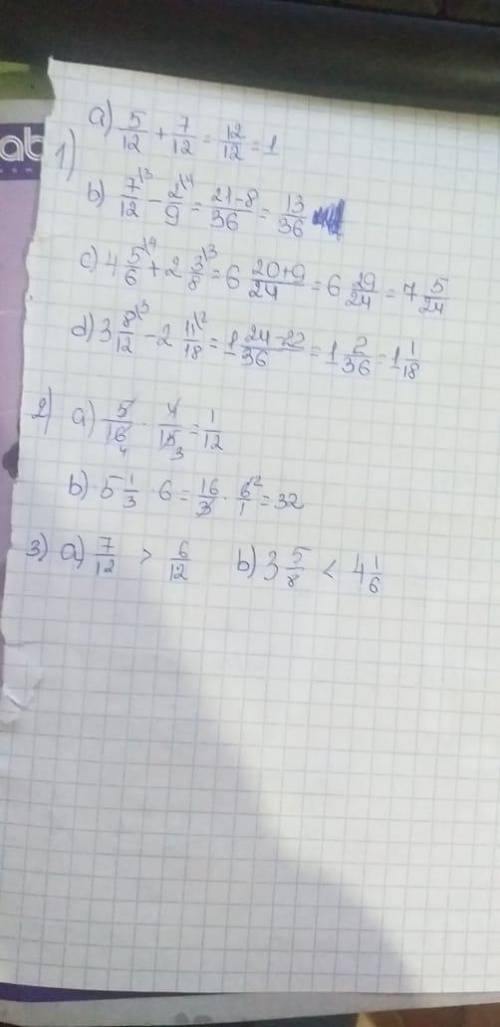 ab
1) a) 5/12 + 7/12 = 12/12 = 1
b) 7\3/12 - 2\4/9 = 21-8/36 = 13/36
c) 4 5\4/6 + 2 3\3/8 = 6 20+9/24 = 6 29/24 = 7 5/24
d) 3 8\3/12 - 2 11\2/18 = 1 24-22/36 = 1 2/36 = 1 1/18
2) a) 5/16 4 · 4/15 3 = 1/12
b) 5 1/3 · 6 = 16/3 · 6\2/1 = 32
3) a) 7/12 > 6/12 b) 3 5/8 < 4 1/6